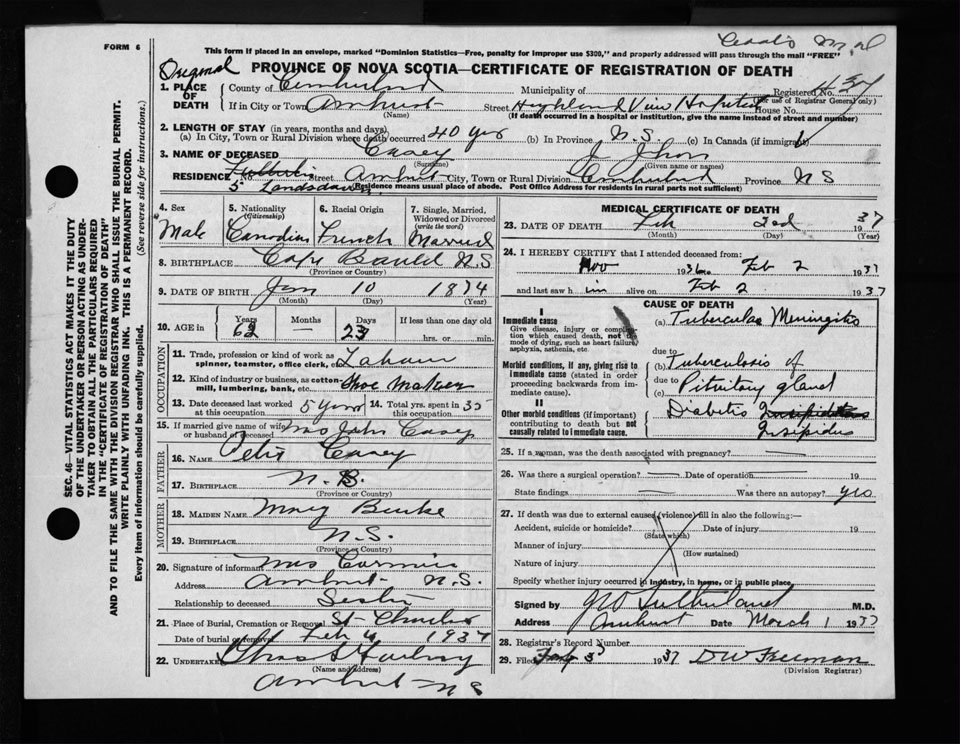 FORM 6
This form if placed in an envelope, marked "Dominion Statistics—Free, penalty for improper use $300," and properly addressed will pass through the mail "FREE"
Original
PROVINCE OF NOVA SCOTIA—CERTIFICATE OF REGISTRATION OF DEATH
1. PLACE OF DEATH
County of Cumberland Municipality of Registered No.
(For use of Registrar General only)
If in City or Town Amherst Street Highland View Hospital House No.
(Name) (If death occurred in a hospital or institution, give the name instead of street and number)
2. LENGTH OF STAY (in years, months and days)
(a) In City, Town or Rural Division where death occurred 40 yrs (b) In Province N.S. (c) In Canada (if immigrant)
3. NAME OF DECEASED Casey John
(Surname) (Given name or names)
RESIDENCE No. Street Amherst City, Town or Rural Division Cumberland Province N S
5 Landsdown (Residence means usual place of abode. Post Office Address for residents in rural parts not sufficient)
4. Sex Male
5. Nationality (Citizenship) Canadian
6. Racial Origin French
7. Single, Married, Widowed or Divorced (write the word) Married
8. BIRTHPLACE Cape Bauld N.S
(Province or Country)
9. DATE OF BIRTH Jan 10 1874
(Month) (Day) (Year)
10. AGE in Years 62 Months — Days 23 If less than one day old hrs. or min.
OCCUPATION
11. Trade, profession or kind of work as spinner, teamster, office clerk, etc.
12. Kind of industry or business, as cotton mill, lumbering, bank, etc. Shoe Maker
13. Date deceased last worked at this occupation 5 years 14. Total yrs. spent in this occupation 35
15. If married give name of wife or husband of deceased Mrs John Casey
FATHER
16. NAME Peter Casey
17. BIRTHPLACE N.B.
(Province or Country)
MOTHER
18. MAIDEN NAME Mary Burke
19. BIRTHPLACE N.S.
(Province or Country)
20. Signature of informant Mrs Cormier
Address Amherst N.S.
Relationship to deceased Sister
21. Place of Burial, Cremation or Removal St Charles
Date of burial or removal Feb 4 1937
22. UNDERTAKER
(Name and Address)
Amherst N S
MEDICAL CERTIFICATE OF DEATH
23. DATE OF DEATH Feb 2nd 1937
(Month) (Day) (Year)
24. I HEREBY CERTIFY that I attended deceased from:
Nov 1936 to Feb 2 1937
and last saw him alive on Feb 2 1937
CAUSE OF DEATH
I
Immediate cause
Give disease, injury or complication which caused death, not the mode of dying, such as heart failure, asphyxia, asthenia, etc.
(a) Tubercular Meningitis
due to
Morbid conditions, if any, giving rise to immediate cause (stated in order proceeding backwards from immediate cause).
(b) Tuberculosis of
due to
(c) Pituitary gland
II
Other morbid conditions (if important) contributing to death but not causally related to immediate cause.
Diabetis Insipidus
Insipidus
25. If a woman, was the death associated with pregnancy? —
26. Was there a surgical operation? — Date of operation 19
State findings — Was there an autopsy? yes
27. If death was due to external causes (violence) fill in also the following:—
Accident, suicide or homicide? Date of injury 19
(State which)
Manner of injury
(How sustained)
Nature of injury
Specify whether injury occurred in industry, in home, or in public place
Signed by Sutherland M.D.
Address Amherst Date March 1 1937
28. Registrar's Record Number
29. Filed 3 1937 D W Freeman
(Division Registrar)
SEC. 46—VITAL STATISTICS ACT MAKES IT THE DUTY OF THE UNDERTAKER OR PERSON ACTING AS UNDERTAKER TO OBTAIN ALL THE PARTICULARS REQUIRED IN THE "CERTIFICATE OF REGISTRATION OF DEATH" AND TO FILE THE SAME WITH THE DIVISION REGISTRAR WHO SHALL ISSUE THE BURIAL PERMIT.
WRITE PLAINLY WITH UNFADING INK. THIS IS A PERMANENT RECORD.
Every item of information should be carefully supplied. (See reverse side for instructions.)